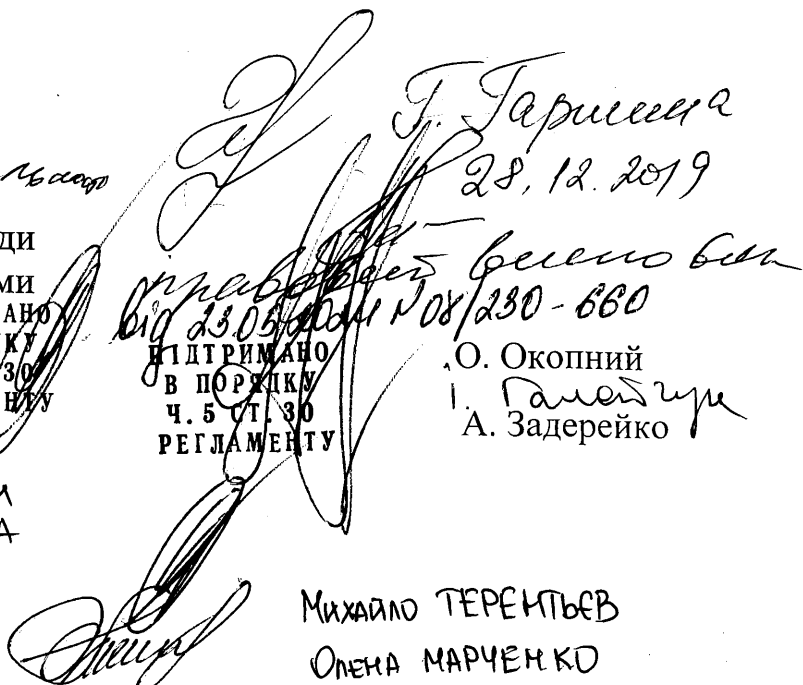 Г. Гаришина
28.12.2019
ДИ
МИ
АНО
КУ
30
НТУ
правовий висновок
від 23.05.2024 № 08/230-660
ПІДТРИМАНО
В ПОРЯДКУ
Ч. 5 СТ. 30
РЕГЛАМЕНТУ
О. Окопний
І. Галайчук
А. Задерейко
Михайло ТЕРЕНТЬЄВ
Олена МАРЧЕНКО